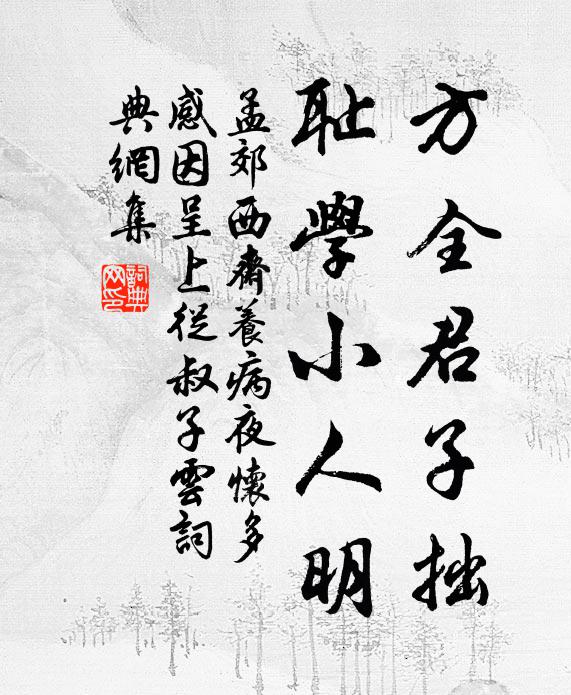 方全君子拙
耻學小人明
孟郊西齋養病夜懷多
感因呈上從叔子雲詞
典網集
詞典網印